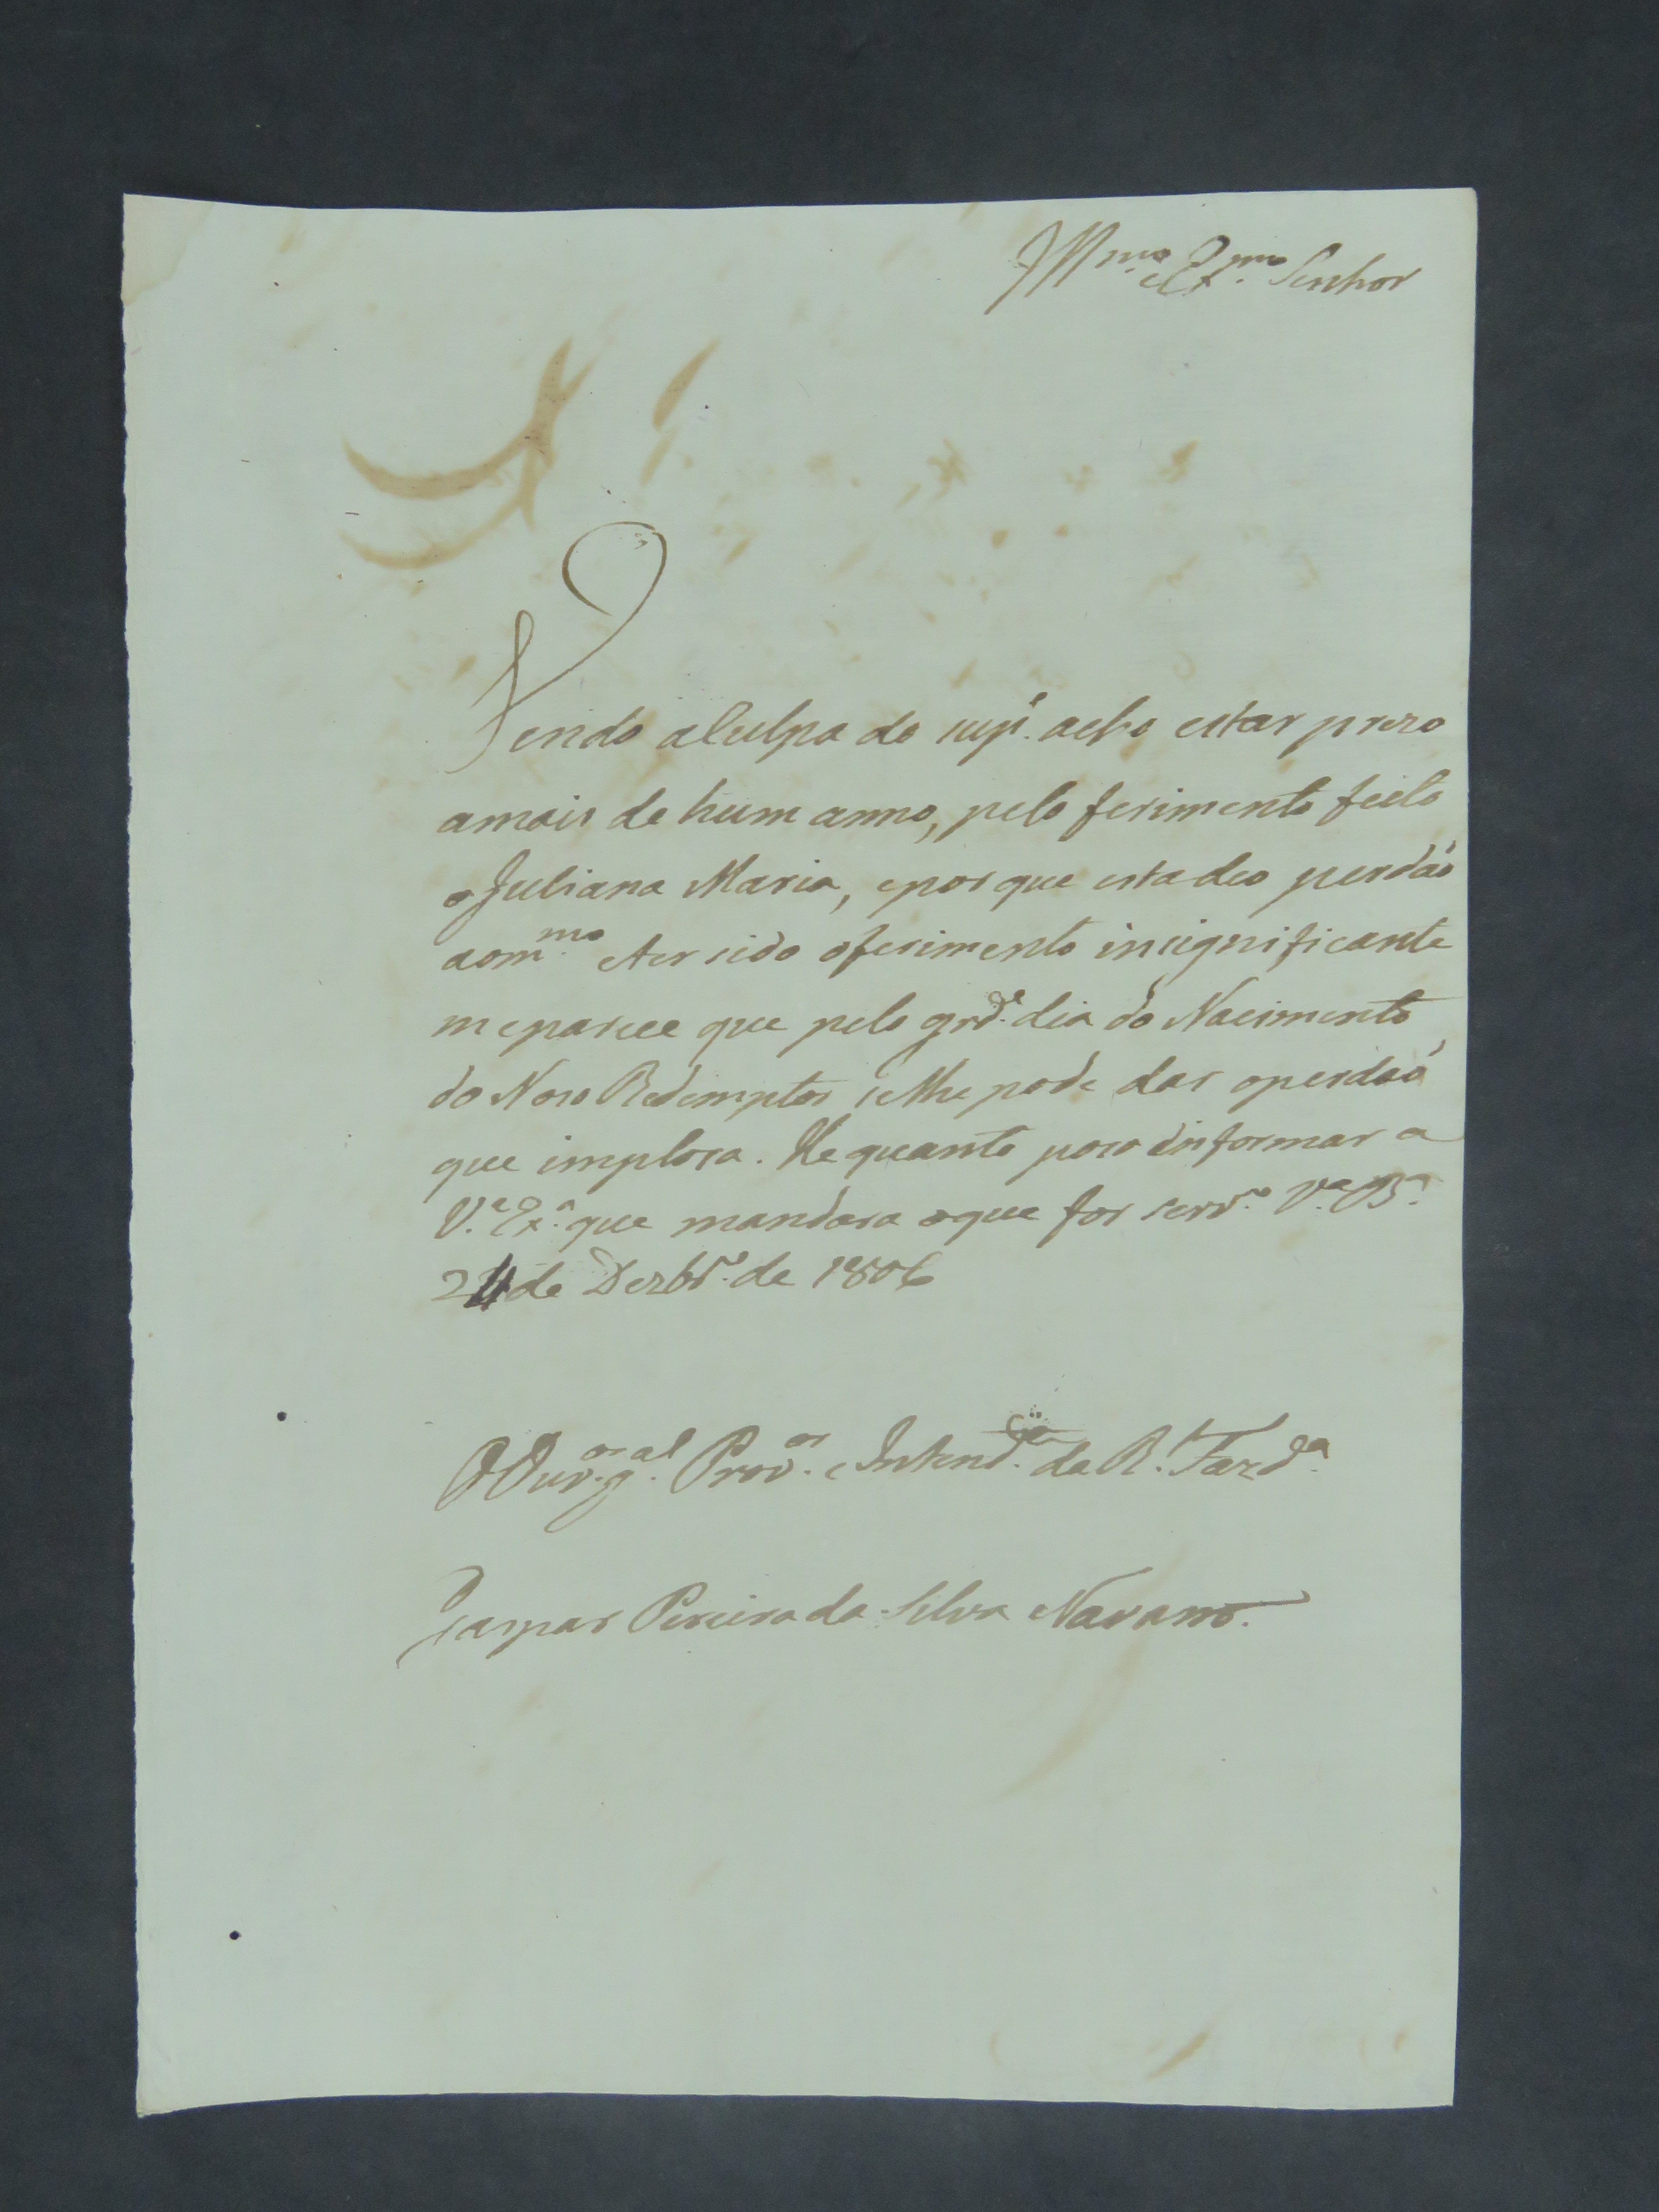 Illmo. e Exmo. Senhor
Vendo a Culpa do supe. acho estar prezo
amais de hum anno, pelo ferimento feito
a Juliana Maria, eporque esta deo perdaõ
aommo. eter sido oferimento insignificante
meparece que pelo grde. dia do Nacimento
do Noso Redemptor selhe pode dar operdaõ
que implora. He quanto poso informar a
V.ª Exª. que mandara oque for servº. Vª. Bª.
24 de Dezbrº. de 1806
O Ouvor. gal. Provor. e Intende. da Rl. Fazdª.
Gaspar Pereira da Silva Navarro.